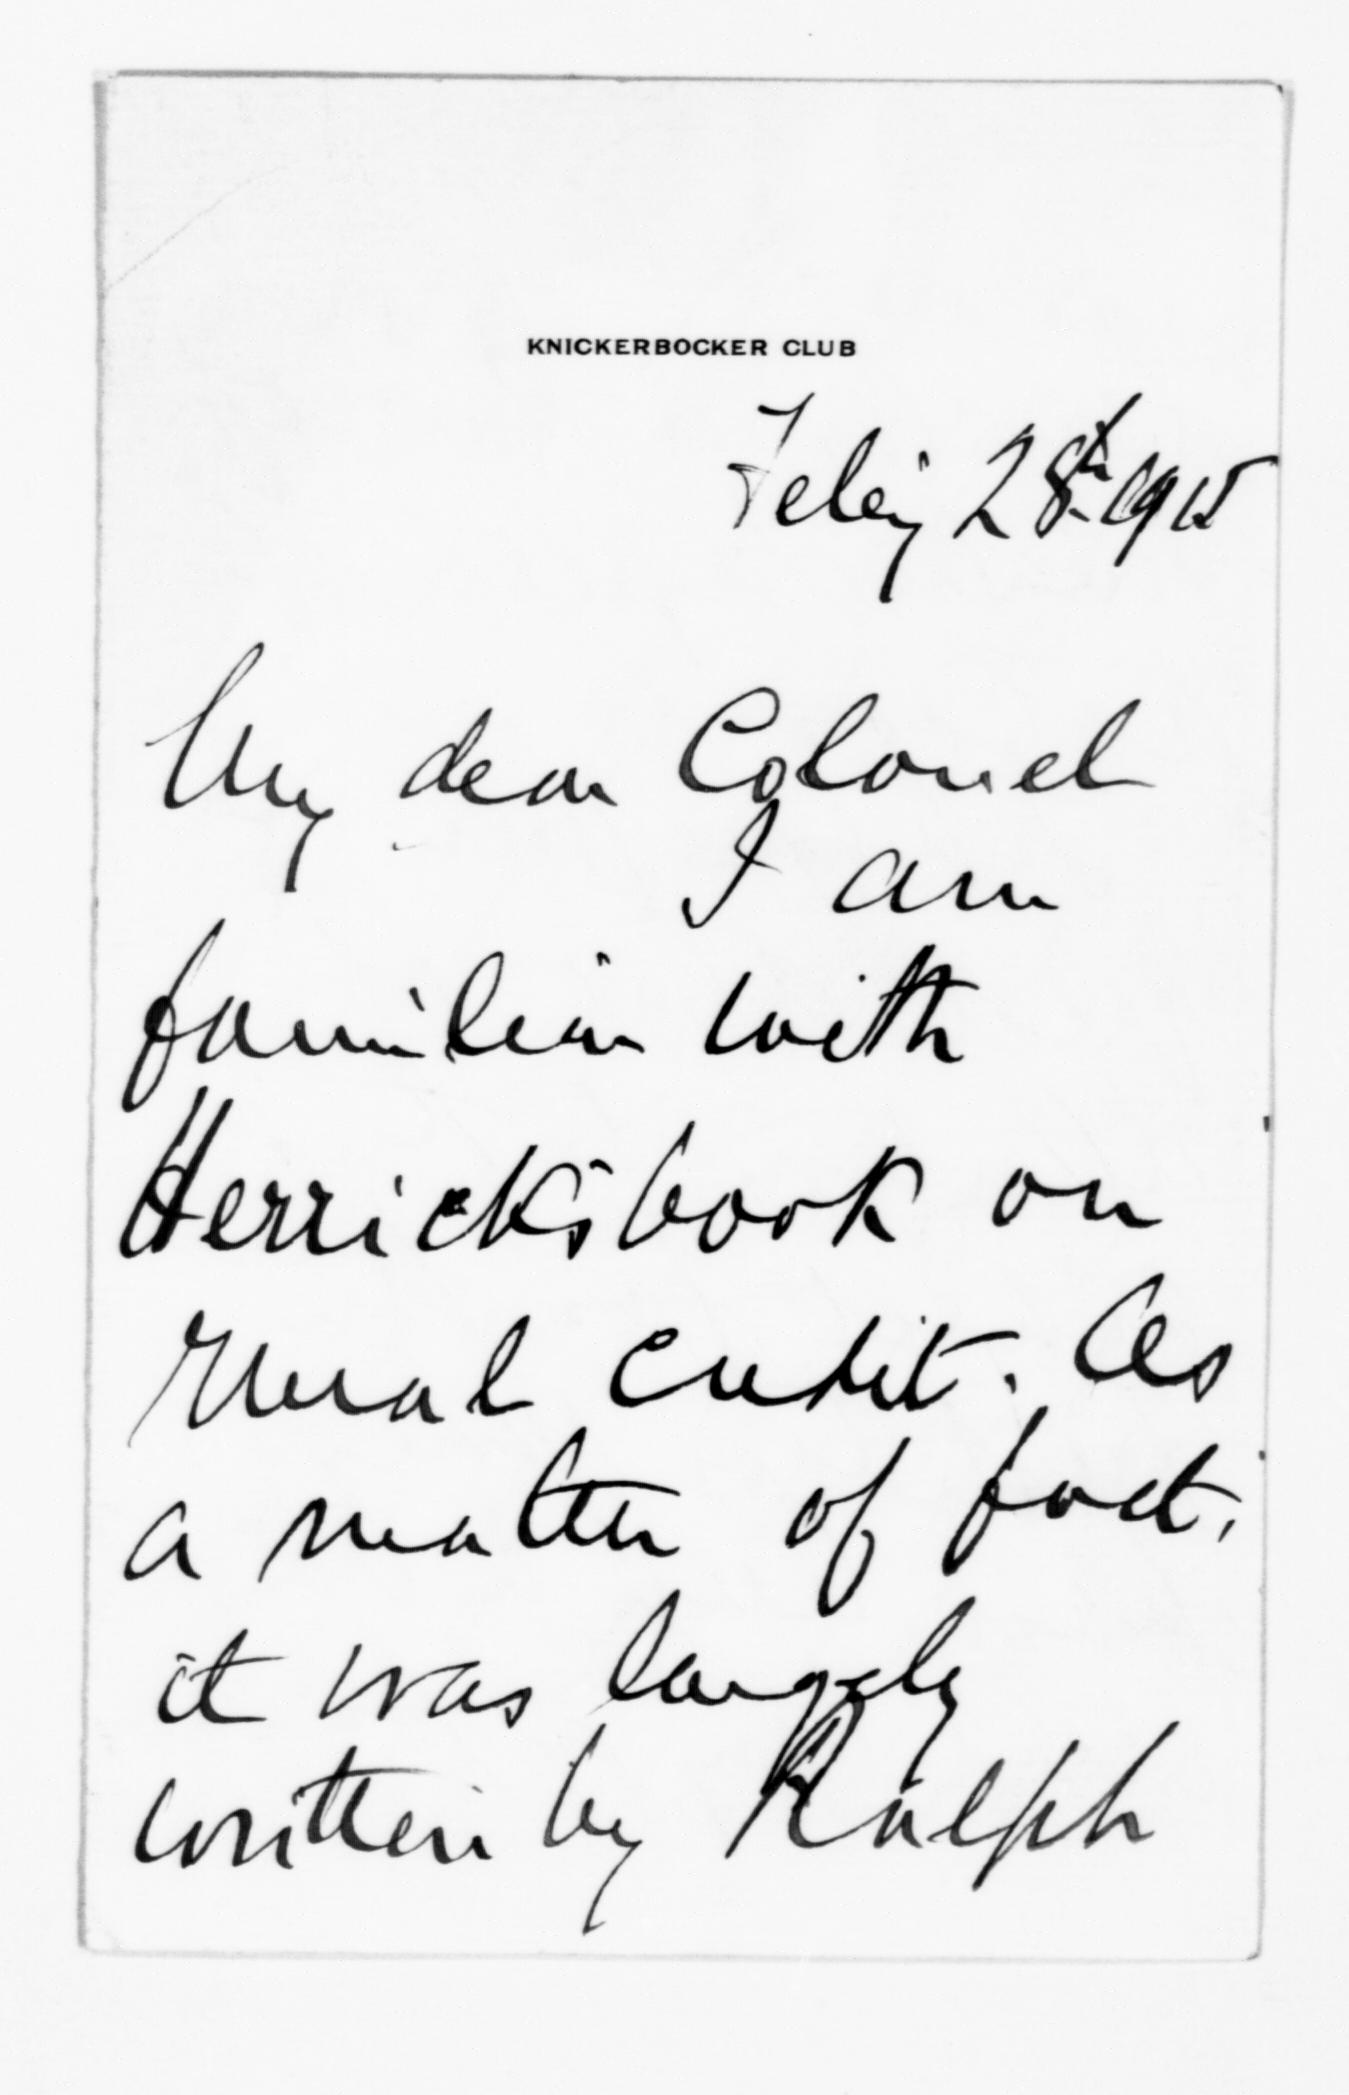 KNICKERBOCKER CLUB
Feby 28th 1915
My dear Colonel
I am
familiar with
Herrick's book on
rural credit. As
a matter of fact,
it was largely
written by Ralph